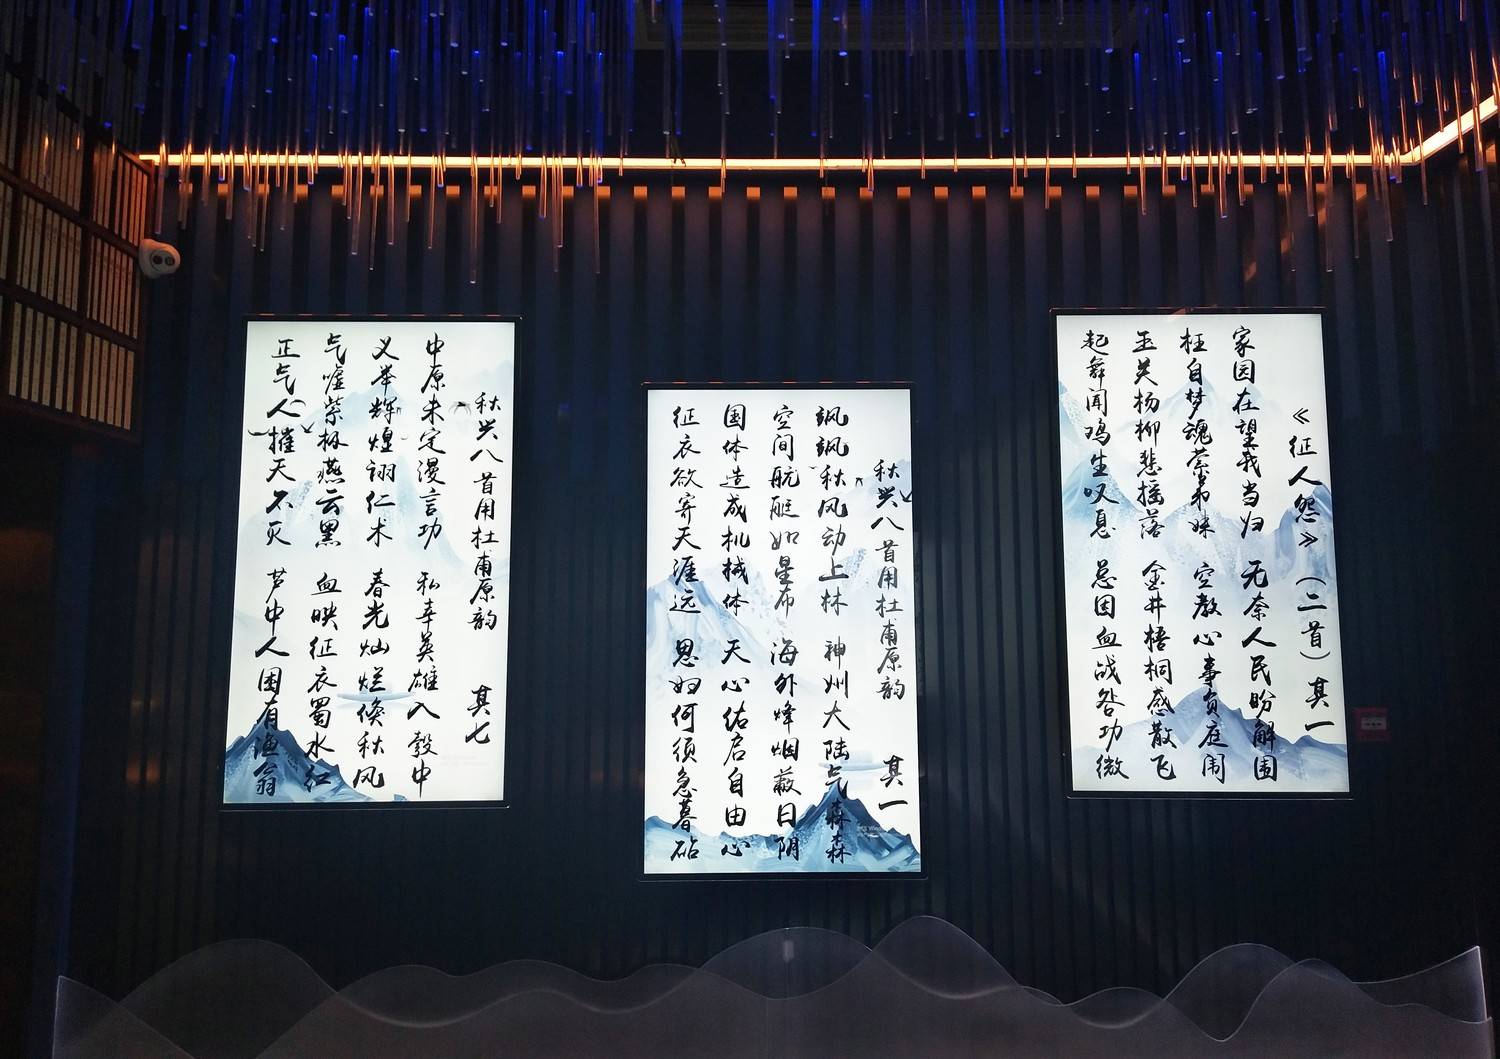 《征人怨》（二首）其一
家园在望我当归 无奈人民盼解围
枉自梦魂萦弟妹 空教心事负庭闱
玉关杨柳悲摇落 金井梧桐感散飞
起舞闻鸡生叹息 总因血战答功微
秋兴八首用杜甫原韵 其一
飒飒秋风动上林 神州大陆气森森
空间航艇如星布 海外烽烟蔽日阴
国体造成机械体 天心佑启自由心
征衣欲寄天涯远 思妇何须急暮砧
秋兴八首用杜甫原韵 其七
中原未定漫言功 私幸英雄入彀中
义举辉煌诩仁术 春光灿烂倏秋风
气嘘紫极燕云黑 血映征衣蜀水红
正气人摧天不灭 芦中人困有渔翁